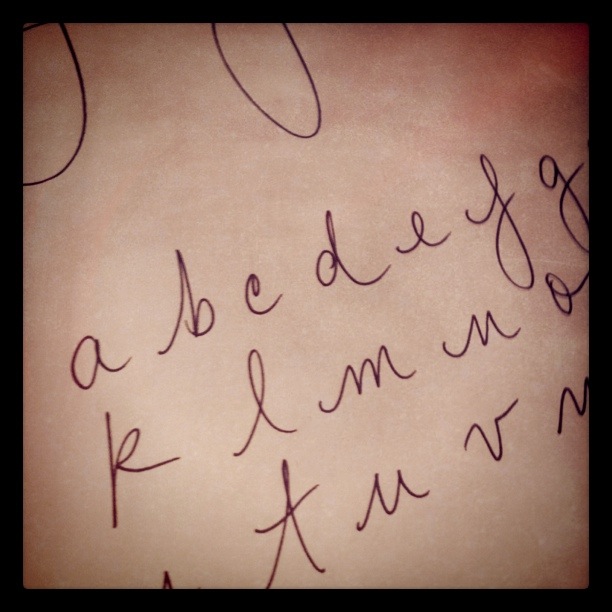 a b c d e f g
k l m n o
t u v